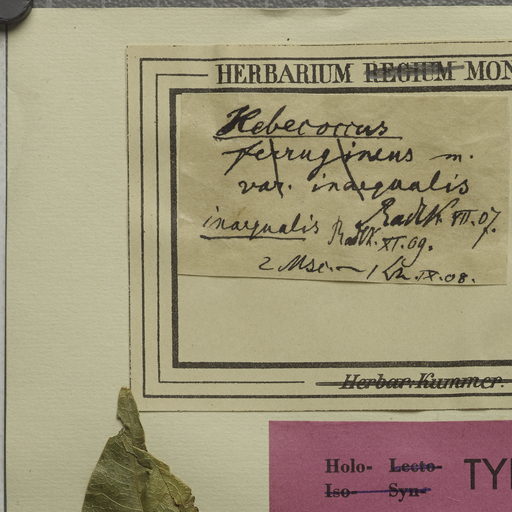 HERBARIUM REGIUM MON
Hebecoccus
ferrugineus m.
var. inaequalis
Radlk. VII.07.
inaequalis Radlk. XI.09.
2 Msc. — 1 IX.08.
Herbar. Kummer.
Holo- Lecto- TY
Iso- Syn-